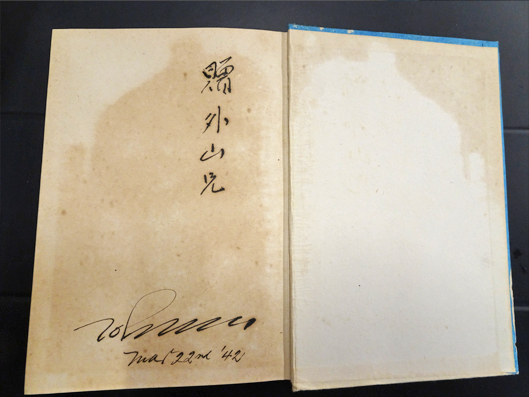 贈
外
山
兄
Mar 22nd '42